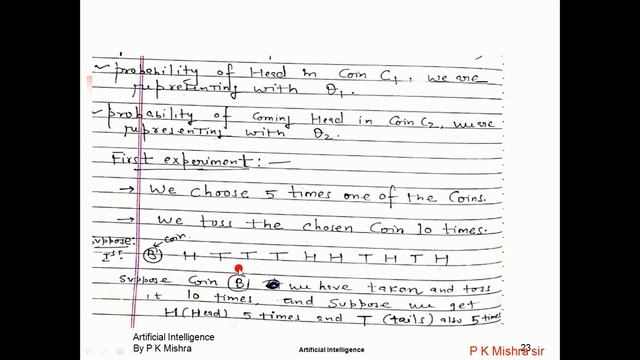 ✓ probability of Head in Coin C1, we are
representing with θ1.
✓ probability of Coming Head in Coin C2, we are
representing with θ2.
First experiment: —
→ We choose 5 times one of the Coins.
→ We toss the chosen Coin 10 times.
Suppose Coin
Ist B H T T T H H T H T H
Suppose Coin B we have taken and toss
it 10 times, and suppose we get
H (Head) 5 times and T (tails) also 5 times
Artificial Intelligence
By P K Mishra
Artificial Intelligence
23
P K Mishra sir